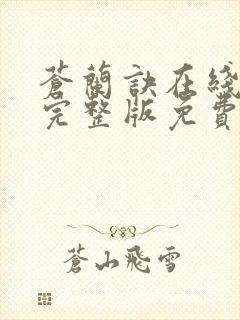 蒼蘭訣在綫
完整版免費
蒼山飛雪